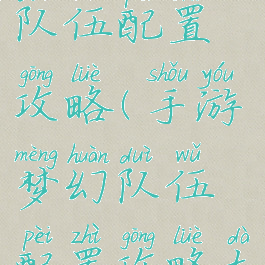 队伍配置
gōng lüè shǒu yóu
攻略(手游
mèng huàn duì wǔ
梦幻队伍
pèi zhì gōng lüè dà
配置攻略大